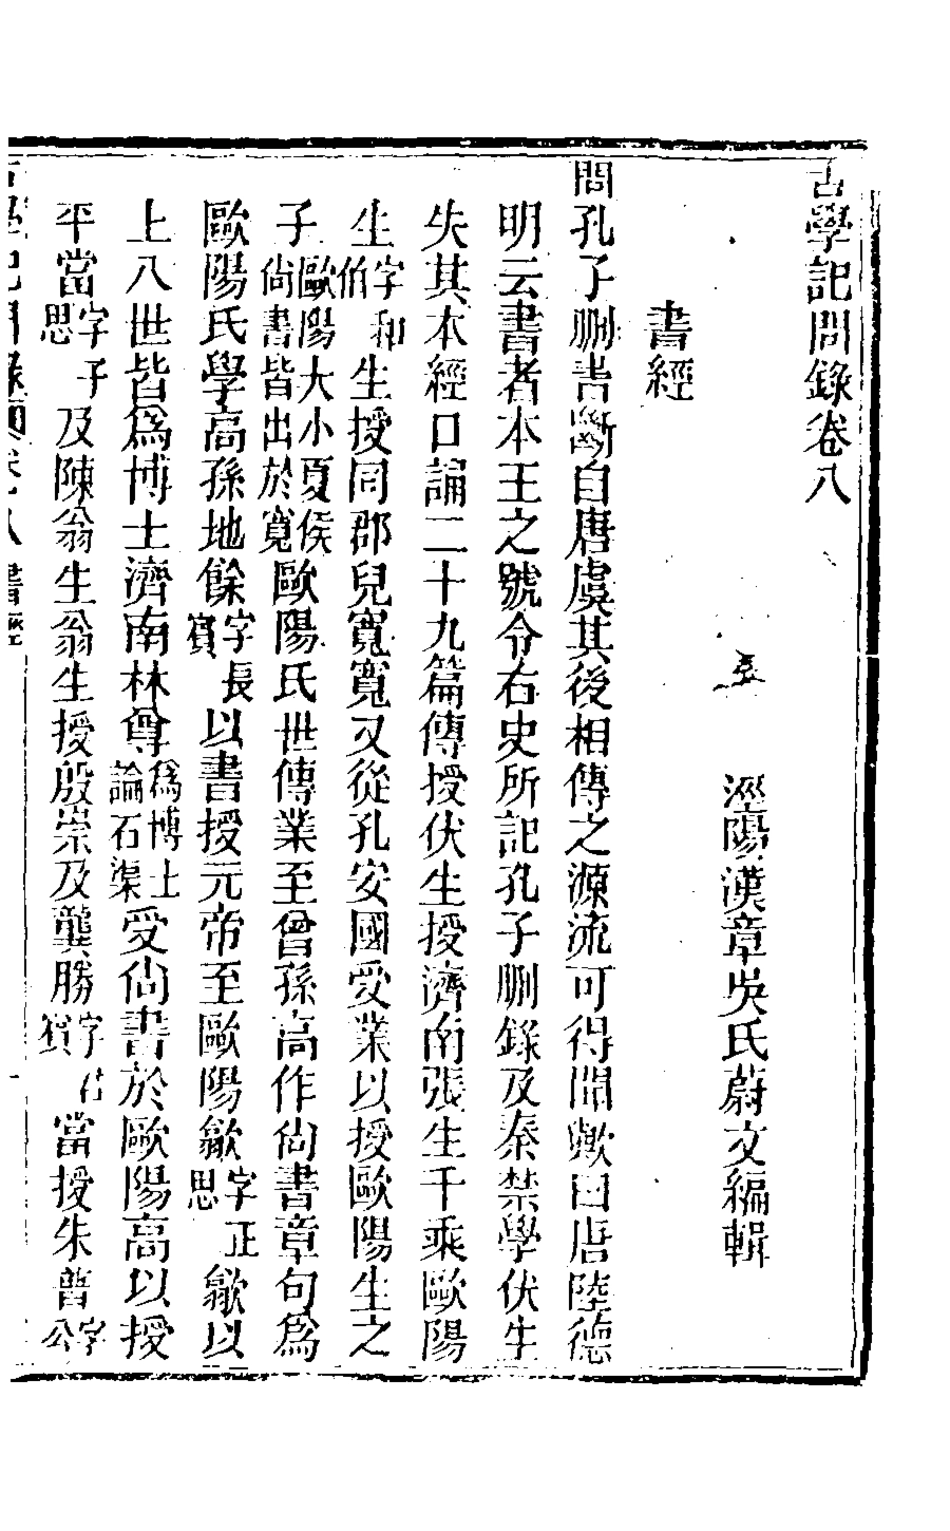 古學記問錄卷八
涇陽漢章吳氏蔚文編輯
書經
問孔子刪書斷自唐虞其後相傳之源流可得聞歟曰唐陸德
明云書者本王之號令右史所記孔子刪錄及秦禁學伏生
失其本經口誦二十九篇傳授伏生授濟南張生千乘歐陽
生字和伯生授同郡兒寬寬又從孔安國受業以授歐陽生之
子歐陽大小夏侯尚書皆出於寬歐陽氏世傳業至曾孫高作尚書章句為
歐陽氏學高孫地餘字長賓以書授元帝至歐陽歙字正思歙以
上八世皆為博士濟南林尊為博士論石渠受尚書於歐陽高以授
平當字子思及陳翁生翁生授殷崇及龔勝字君賓當授朱普字公
古學記問錄卷八 書經 一